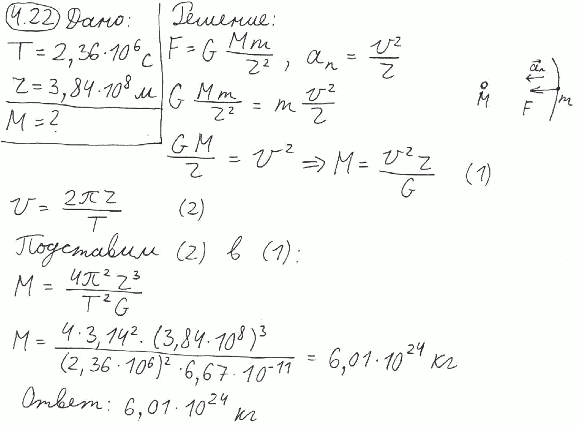 4.22 Дано:
T = 2,36·10⁶ с
r = 3,84·10⁸ м
M = ?
Решение:
F = G Mm/r², aₙ = v²/r
G Mm/r² = m v²/r
GM/r = v² ⇒ M = v²r/G (1)
M F a⃗ₙ m
v = 2πr/T (2)
Подставим (2) в (1):
M = 4π²r³/T²G
M = 4·3,14²·(3,84·10⁸)³/(2,36·10⁶)²·6,67·10⁻¹¹ = 6,01·10²⁴ кг
Ответ: 6,01·10²⁴ кг